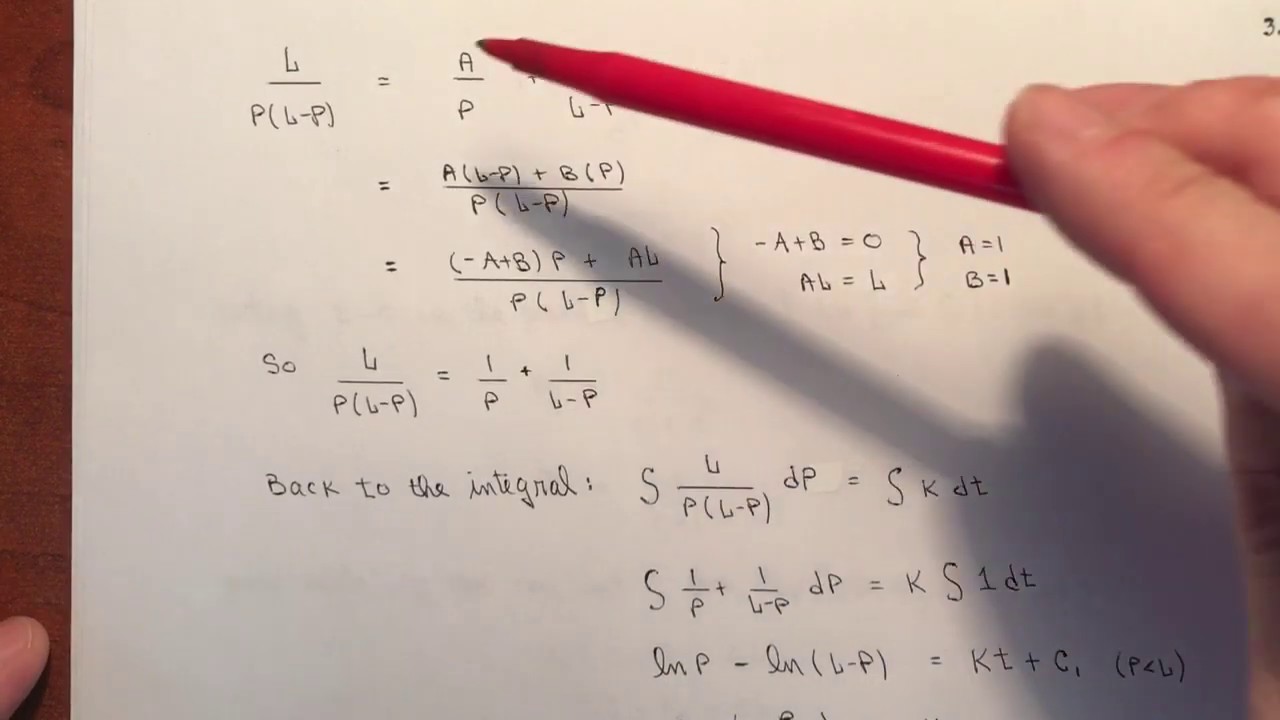 3.
L/P(L-P) = A/P + /L-P
= A(L-P) + B(P)/P(L-P)
= (-A+B)P + AL/P(L-P) } -A+B = 0 AL = L } A=1 B=1
So L/P(L-P) = 1/P + 1/L-P
Back to the integral: ∫ L/P(L-P) dP = ∫ K dt
∫ 1/P + 1/L-P dP = K ∫ 1 dt
ln P - ln(L-P) = Kt + C₁ (P<L)